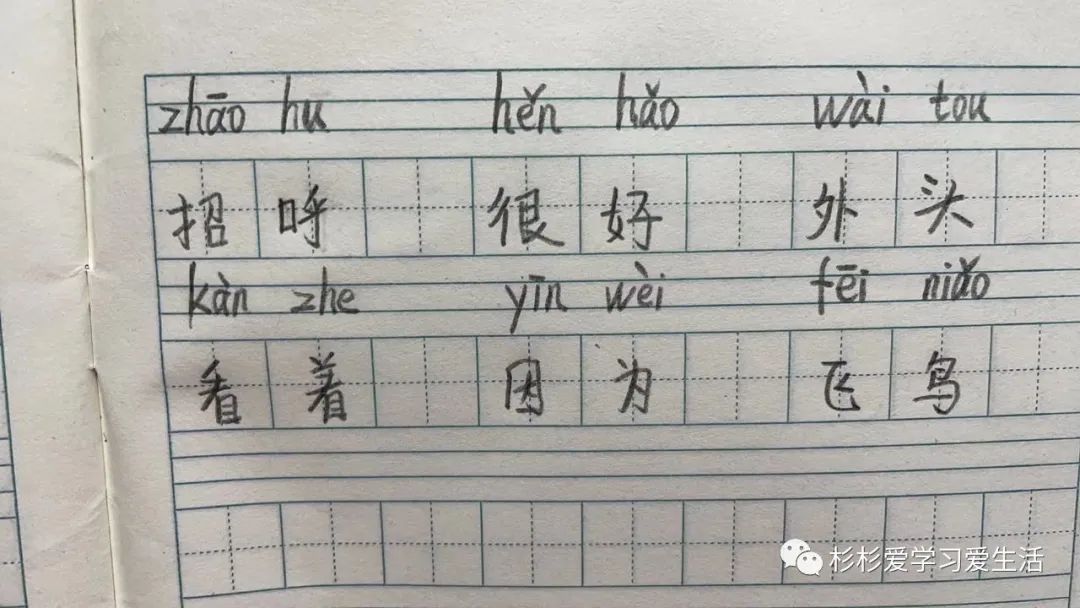 zhāo hu hěn hǎo wài tou
招呼 很好 外头
kàn zhe yīn wèi fēi niǎo
看着 因为 飞鸟
杉杉爱学习爱生活